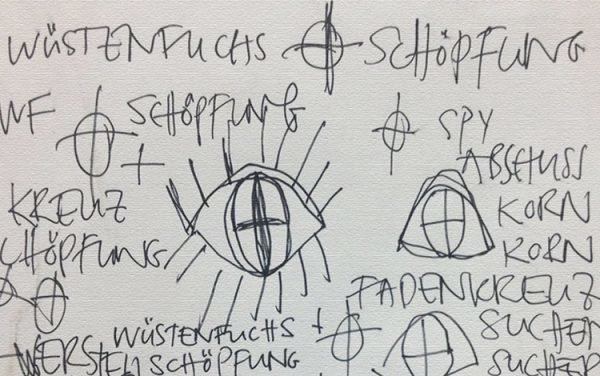 WÜSTENFUCHS SCHÖPFUNG
WF SCHÖPFUNG SPY
+ ABSCHUSS
KREUZ KORN
CHÖPFUNG KORN
FADENKREUZ
WÜSTENFUCHS + SUCHER
SCHÖPFUNG SUCHER